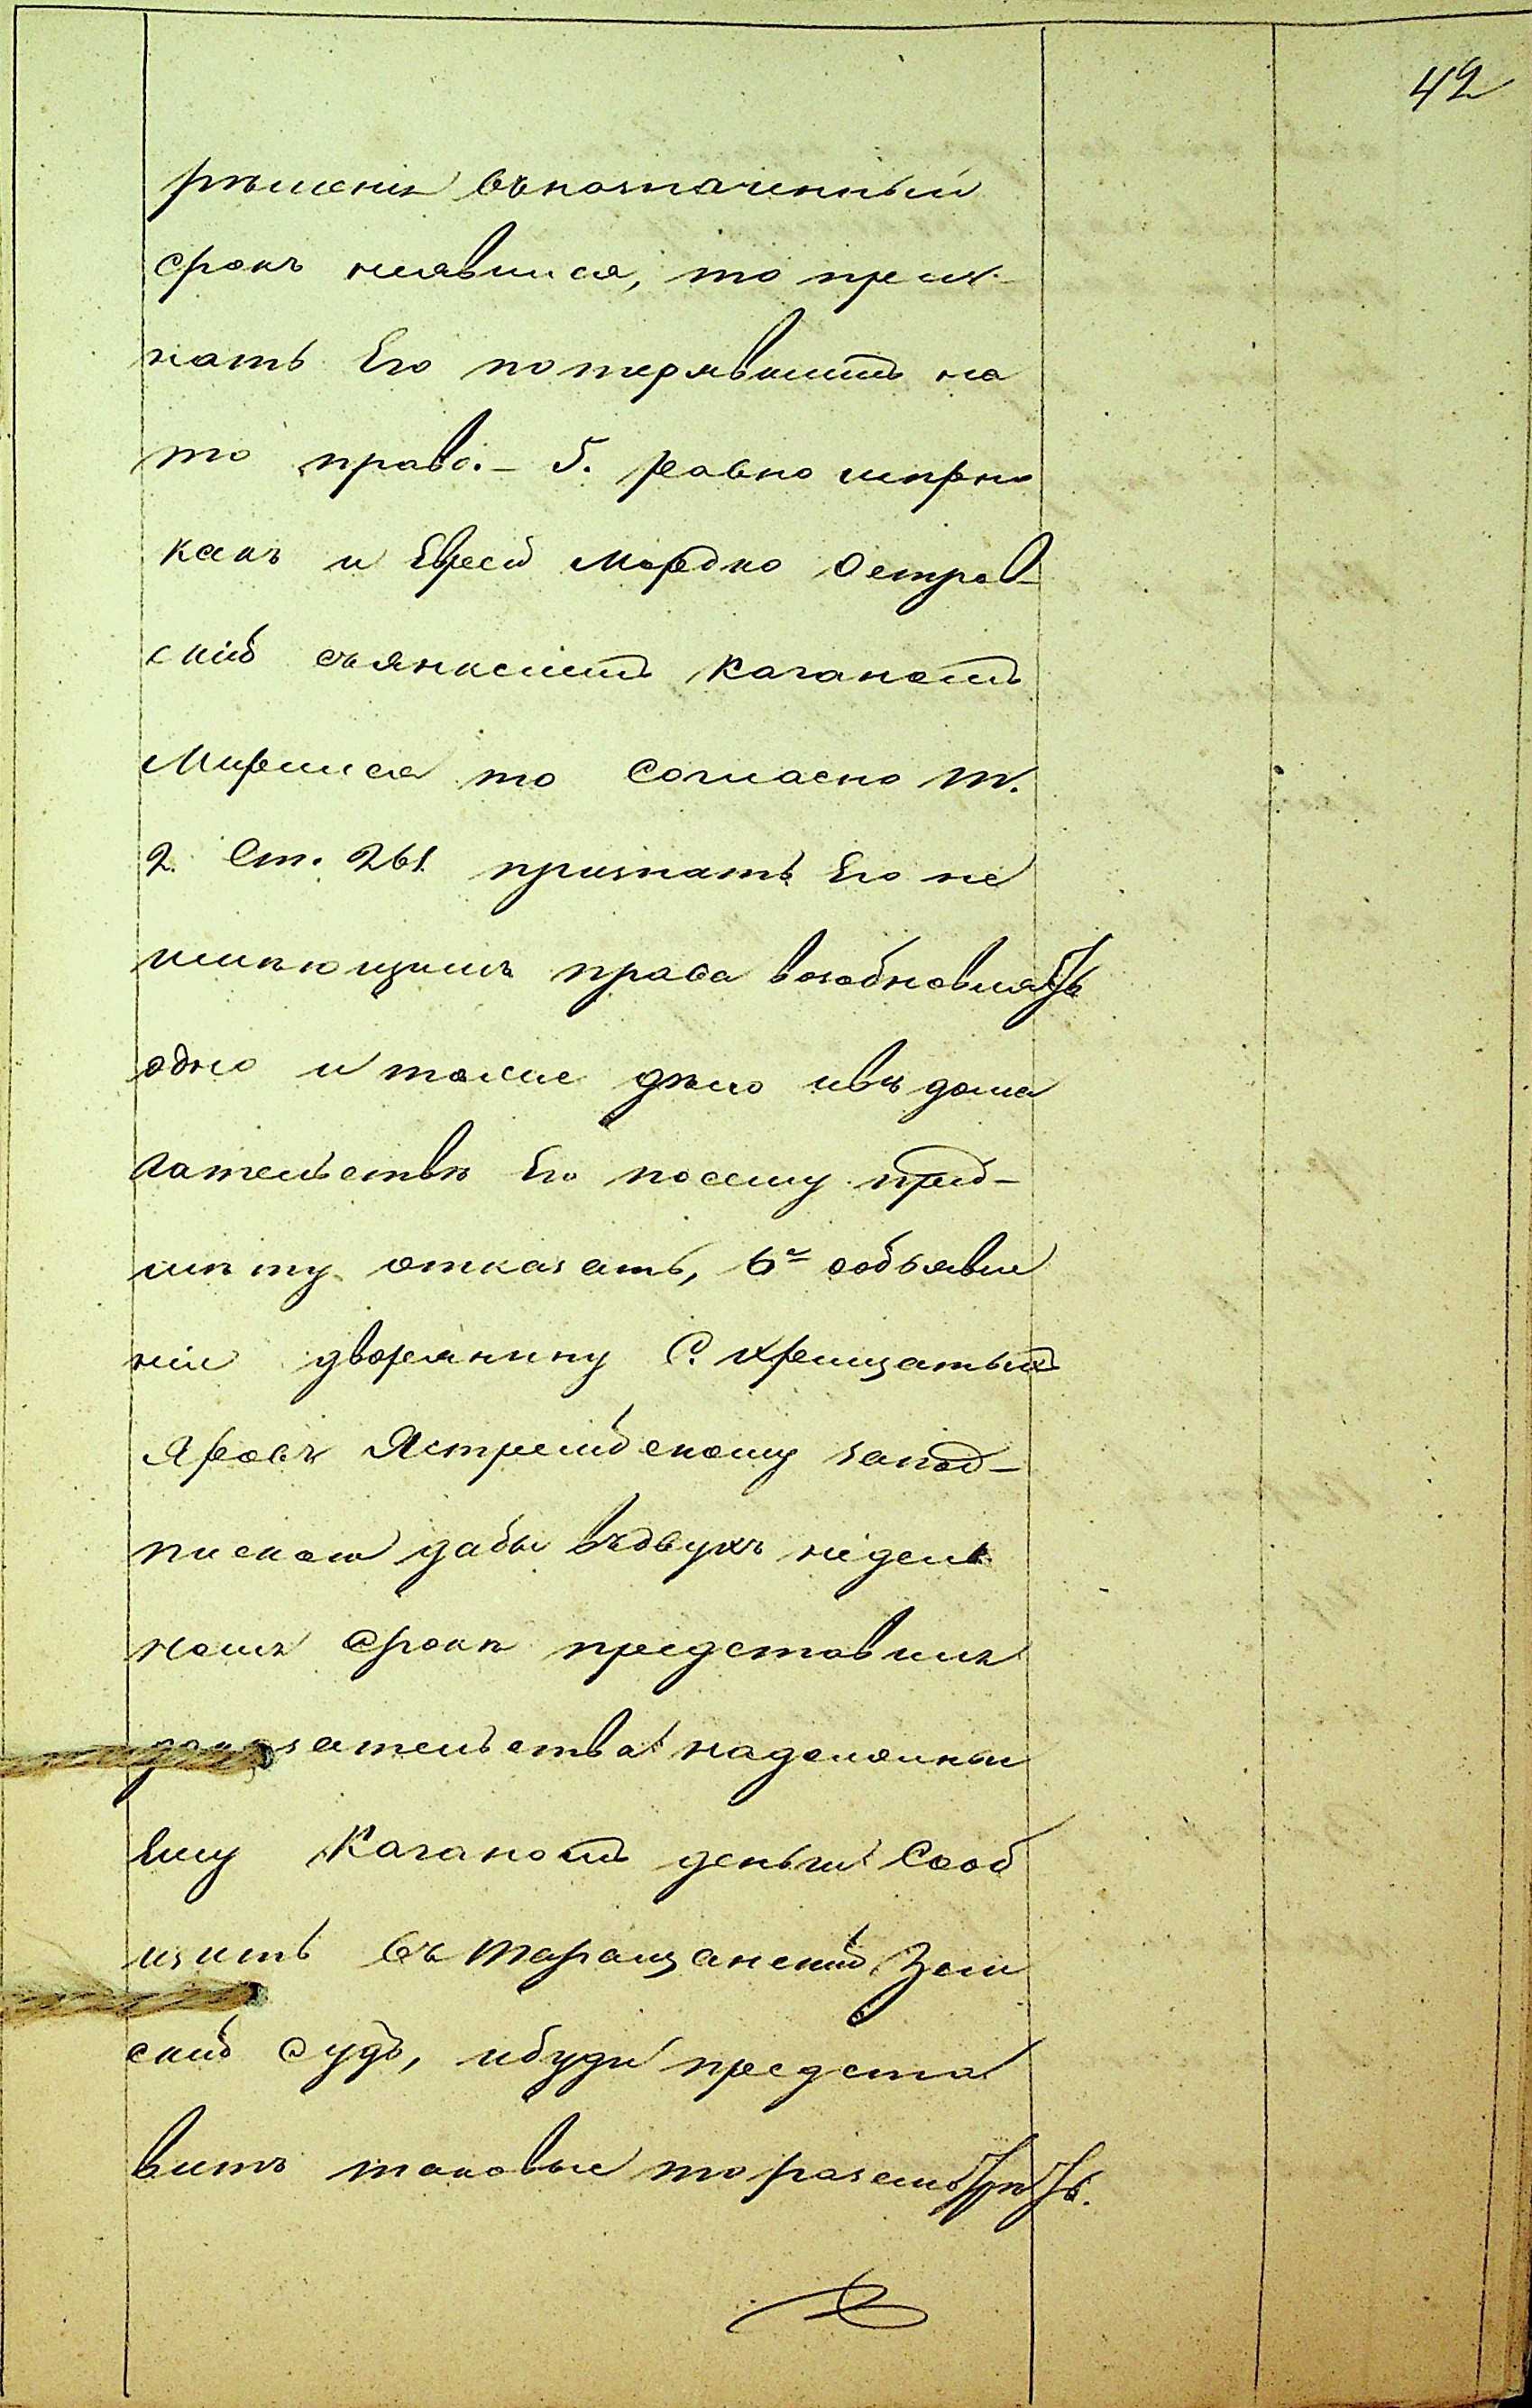 42
рѣшенія въназначенный
срокъ неявился, топриз-
нать Его потерявшимъ на
то право.- 5. равномѣрно
какъ и Еврей Мордко Остров-
скій съянкелемъ Каганомъ
Мирился то согласно т.
2. Ст. 261 признать Его не
имѣющимъ права возобновлять
одно и тоже дѣло ивъ дома
гательствѣ Его посему пред-
мѣту отказать, 6е объявле
ніи дворянину С. Хрещатыхъ
Яровъ Ястрембскому запод-
пискою дабы въдвухъ недель
номъ срокѣ представилъ
доказательства надолжныи
Ему Каганомъ деньги Сооб
щить въ Таращанскій Зем
скій Судъ, ибуди предста
витъ таковые то разсмотрѣть.